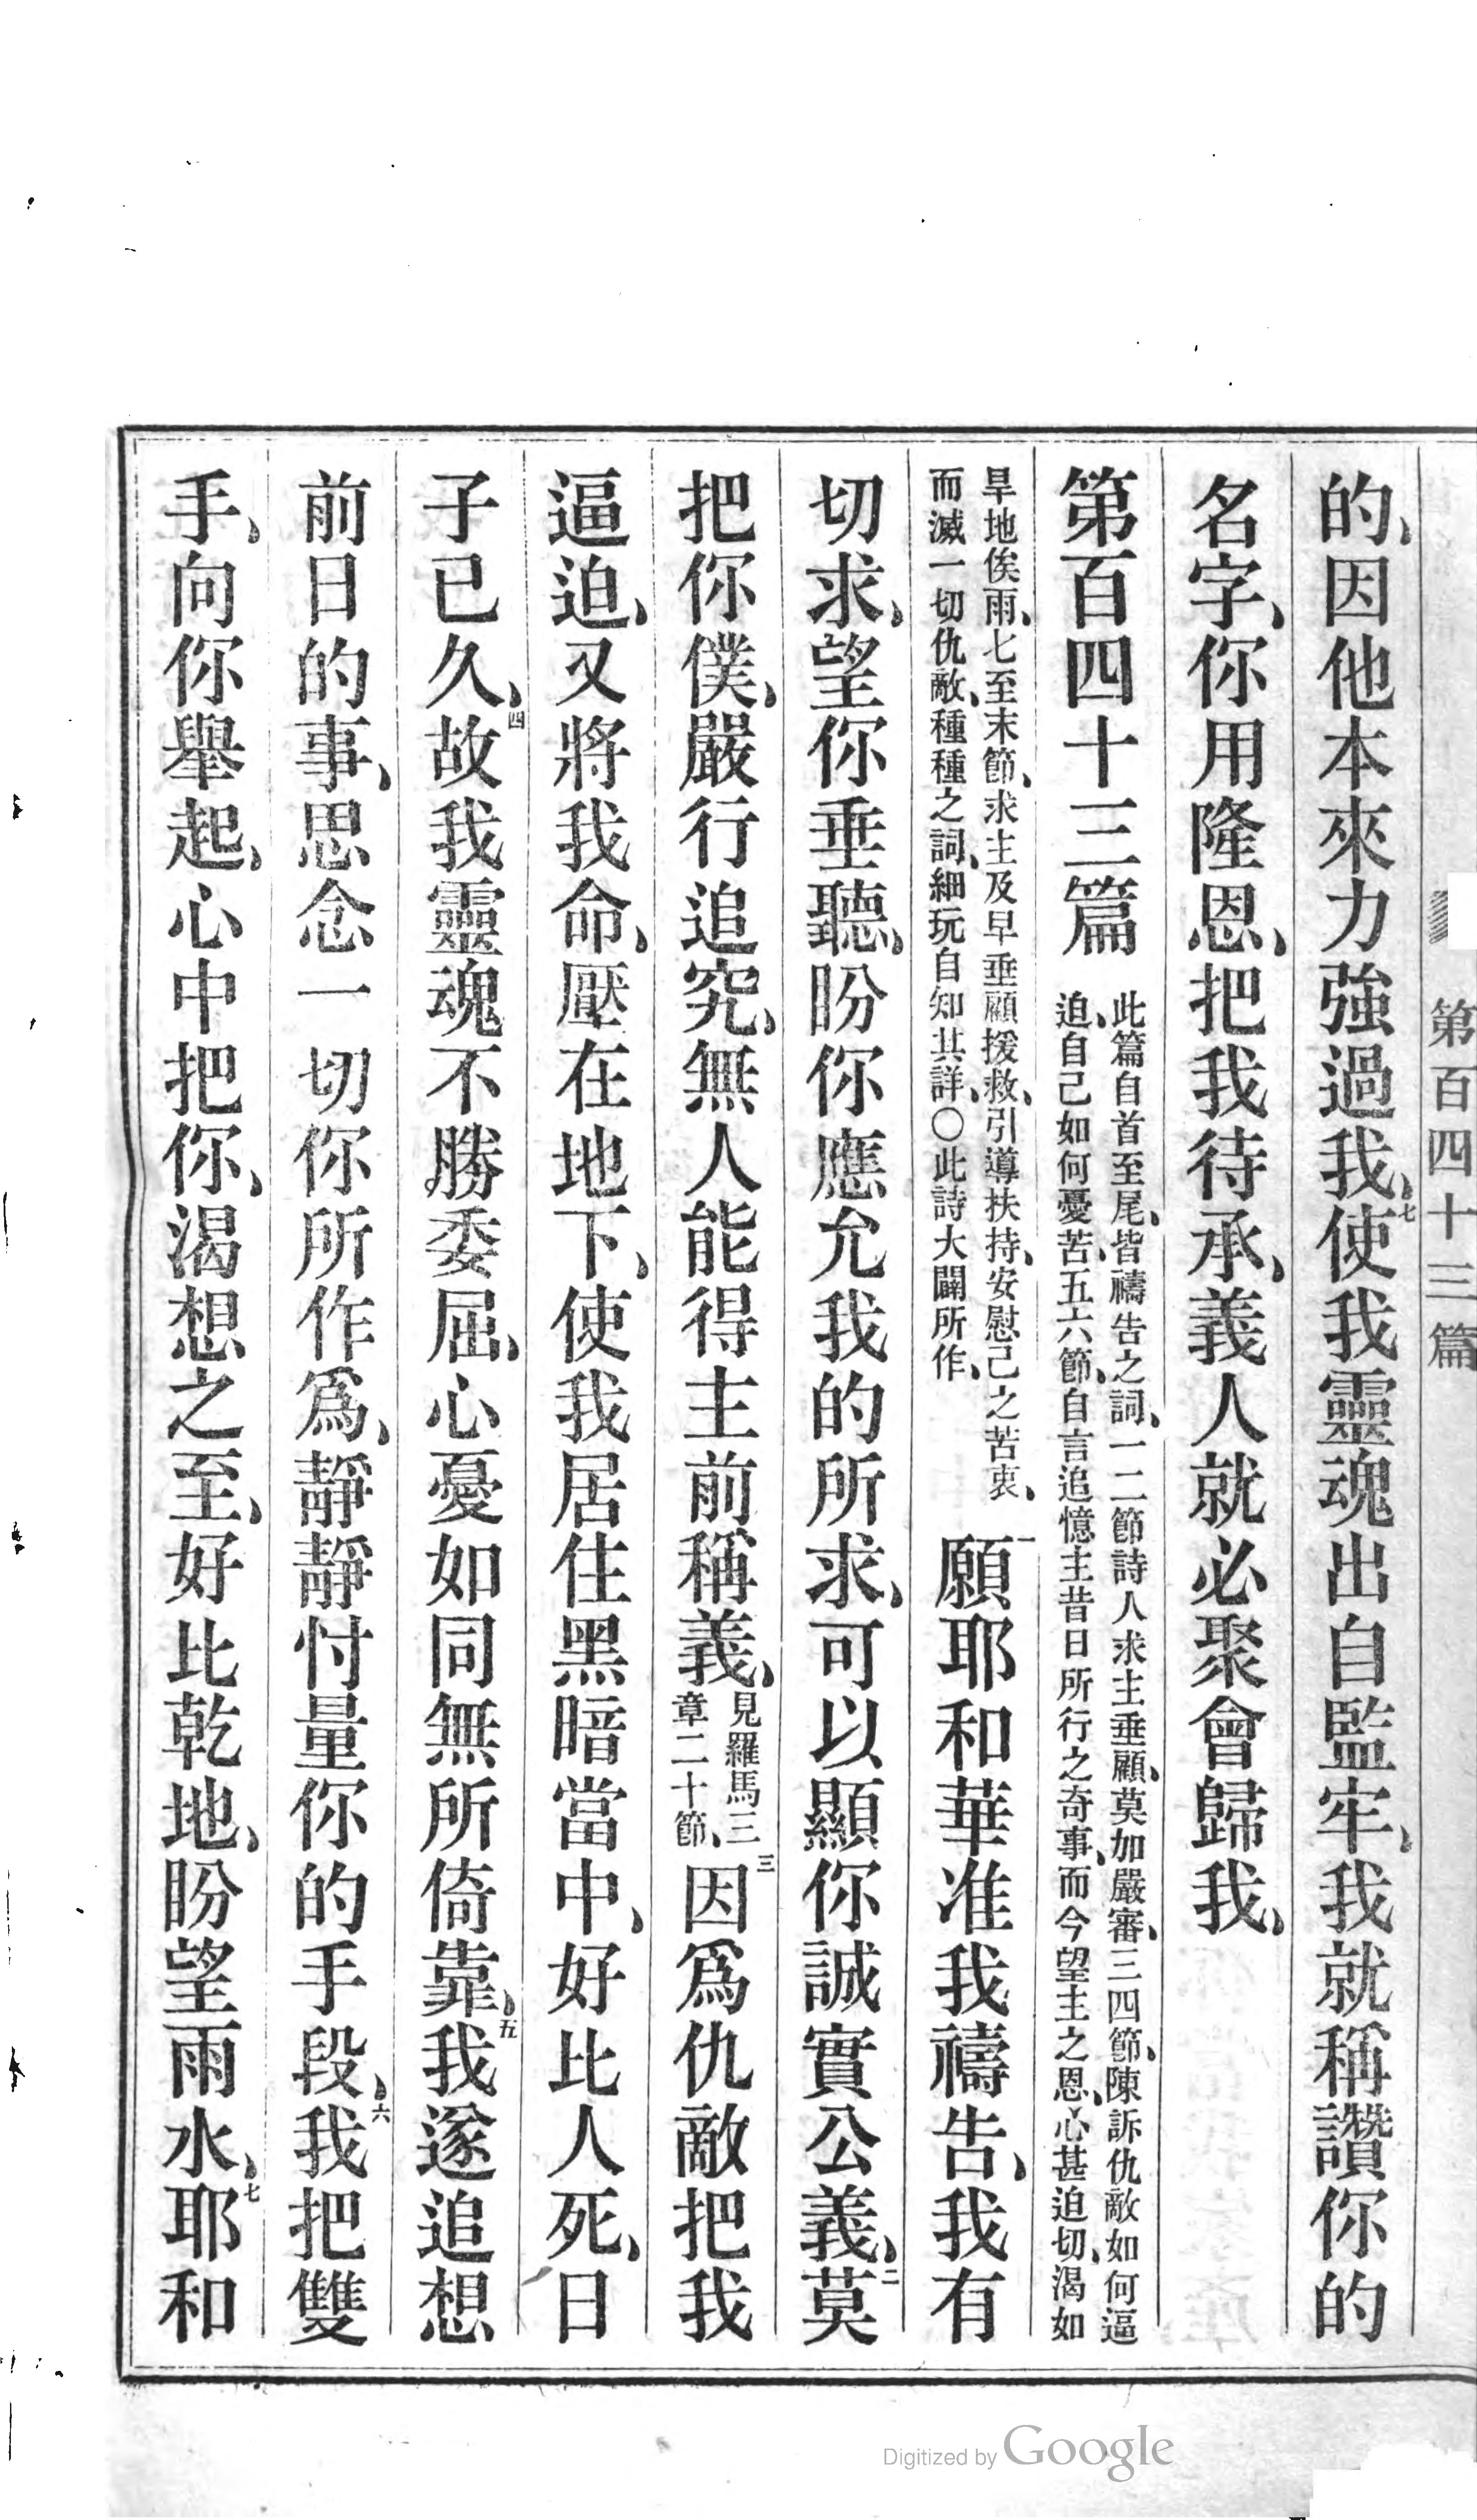 第百四十三篇
的、因他本來力強過我、七使我靈魂出自監牢、我就稱讚你的
名字、你用隆恩、把我待承、義人就必聚會歸我、
第百四十三篇
此篇自首至尾、皆禱告之詞、一二節詩人求主垂顧、莫加嚴審、三四節、陳訴仇敵如何逼
迫、自己如何憂苦、五六節、自言追憶主昔日所行之奇事、而今望主之恩、心甚迫切、渴如
旱地俟雨、七至末節、求主及早垂顧援救、引導扶持、安慰己之苦衷、
而滅一切仇敵、種種之詞、細玩自知其詳、○此詩大闢所作、
一願耶和華准我禱告、我有
切求、望你垂聽、盼你應允我的所求、可以顯你誠實公義、二莫
把你僕、嚴行追究、無人能得主前稱義、
見羅馬三
章二十節、
三因爲仇敵把我
逼迫、又將我命、壓在地下、使我居住黑暗當中、好比人死、日
子已久、四故我靈魂不勝委屈、心憂如同無所倚靠、五我遂追想
前日的事、思念一切你所作爲、靜靜忖量你的手段、六我把雙
手、向你舉起、心中把你、渴想之至、好比乾地、盼望雨水、七耶和
Digitized by Google